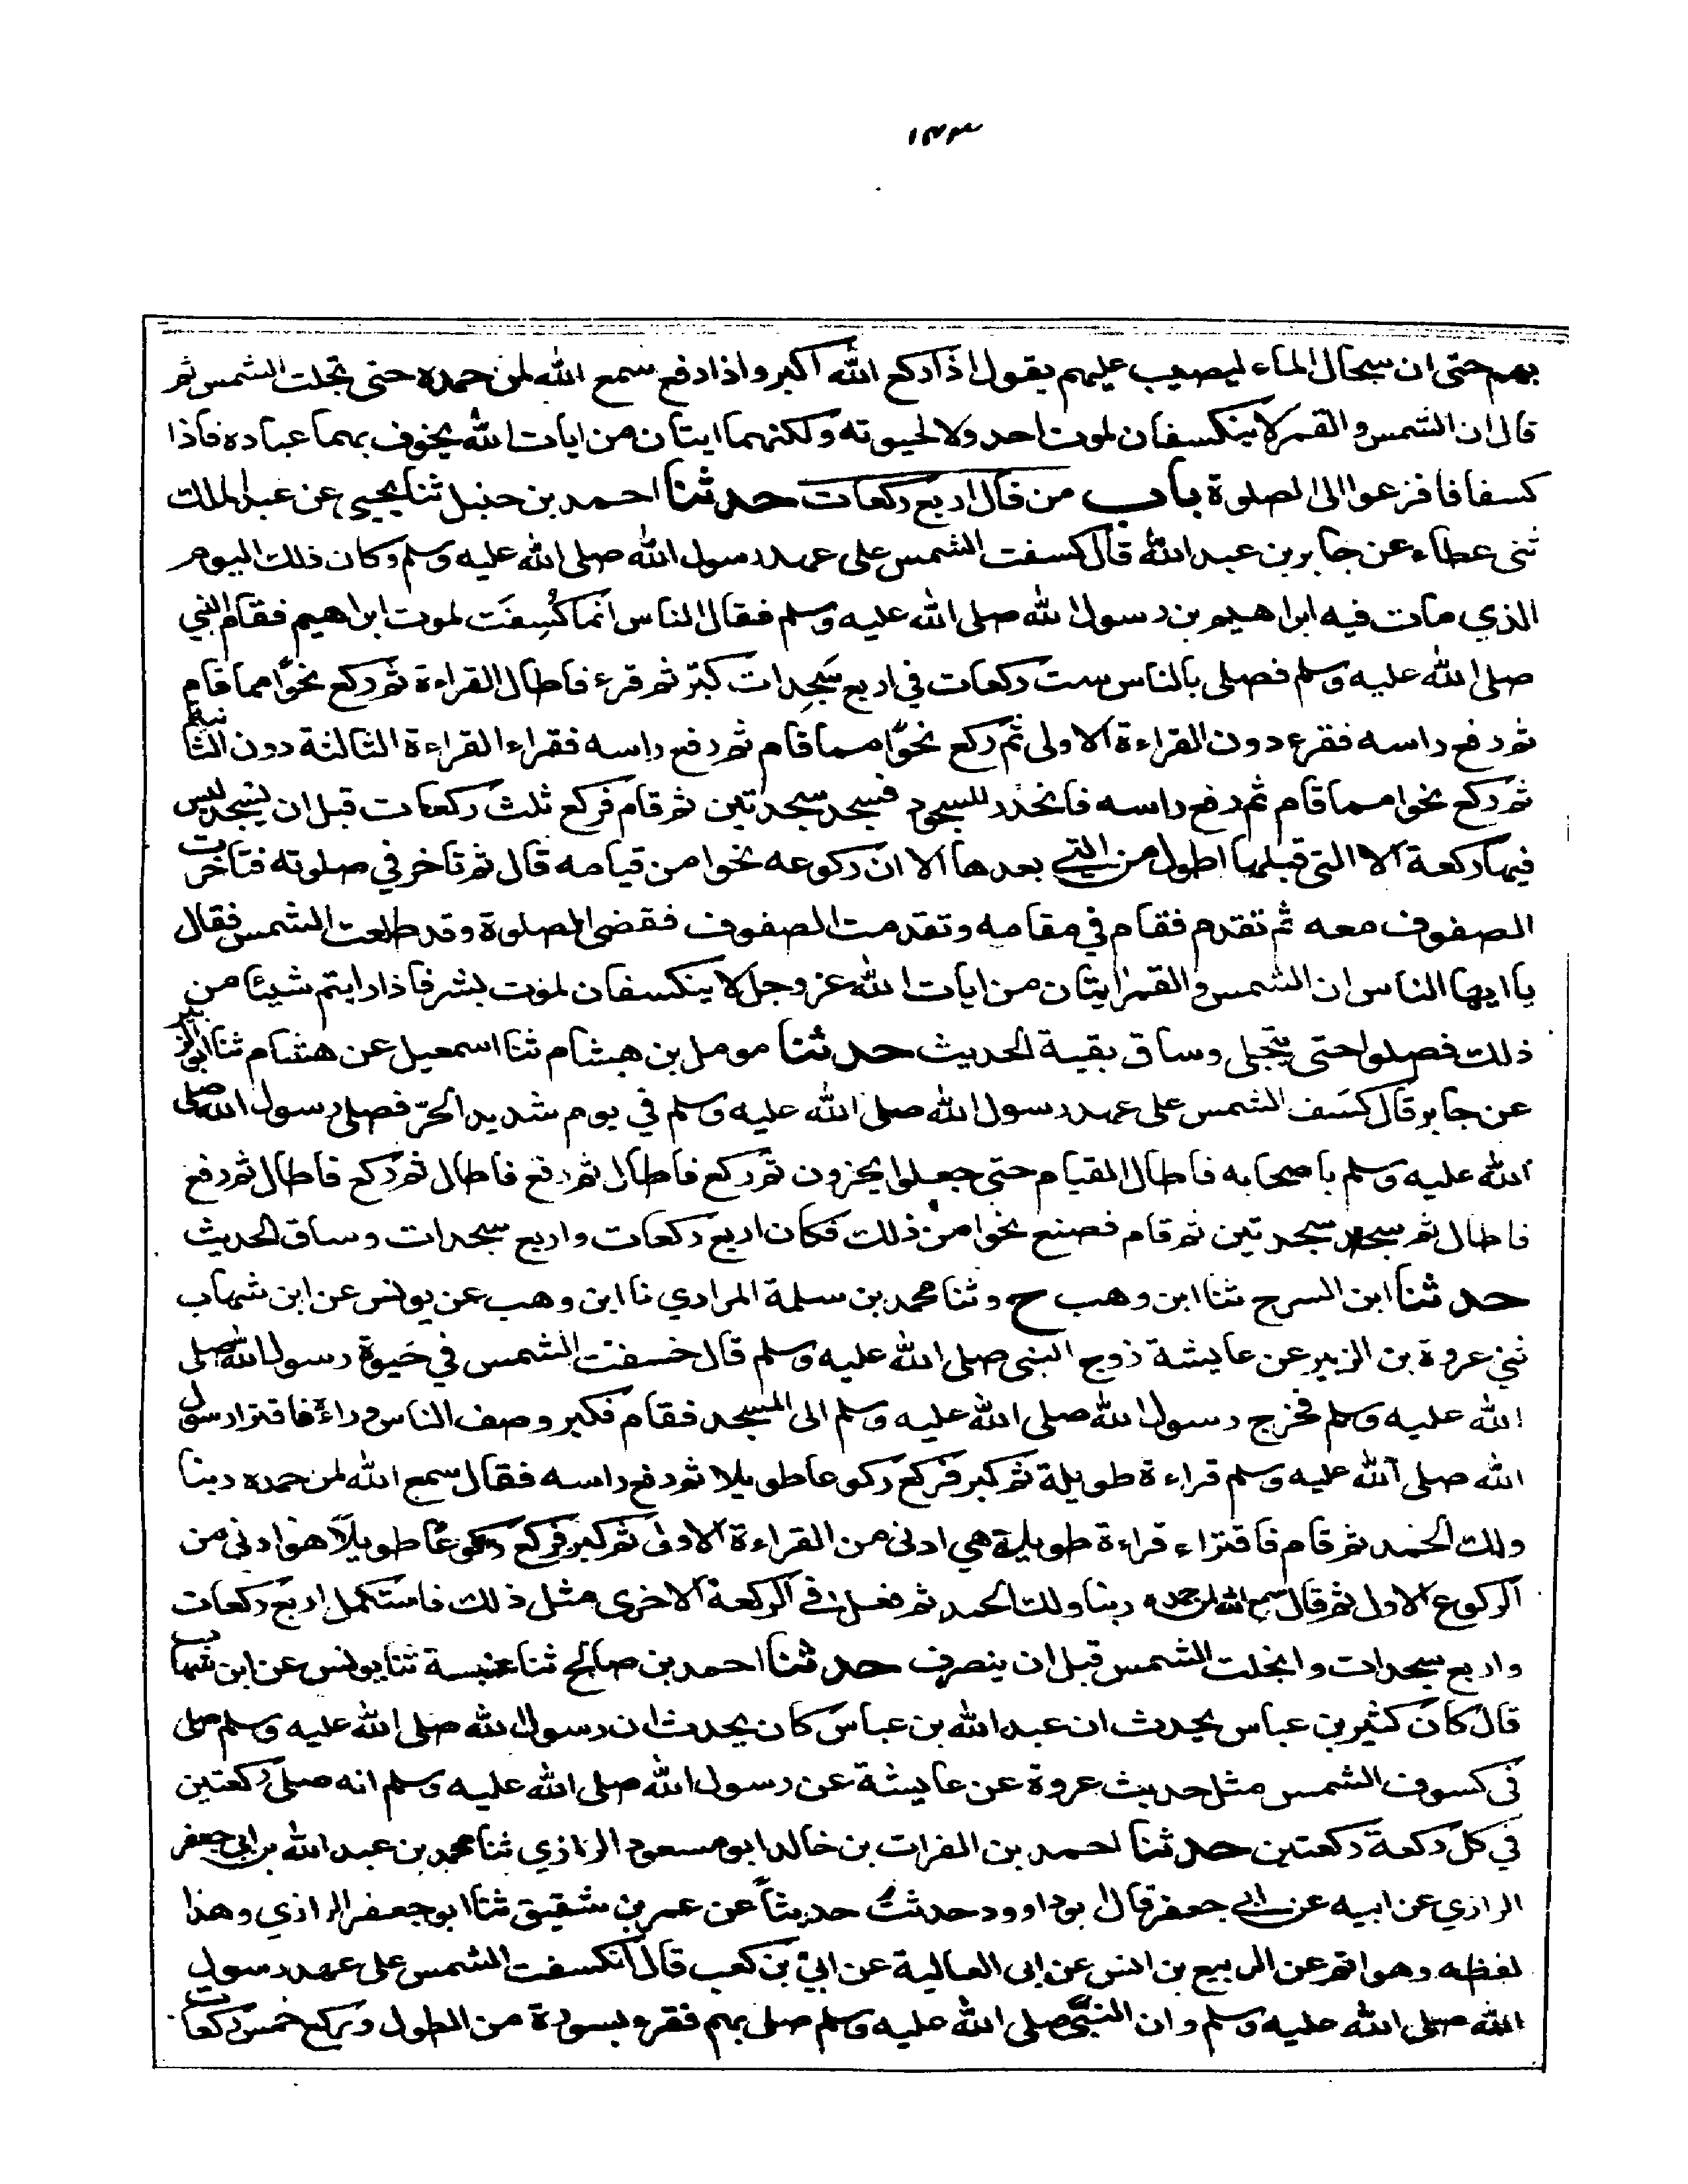 ١٣٣
بهم حتى ان سجال الماء ليصب عليهم يقول اذا ركع الله اكبر واذا رفع سمع الله لمن حمده حتى تجلت الشمس ثم
قال ان الشمس والقمر لا ينكسفان لموت احد ولا لحيوته ولكنهما ايتان من ايات الله يخوف بهما عباده فاذا
كسفا فافزعوا الى الصلوة باب من قال اربع ركعات حدثنا احمد بن حنبل ثنا يحيى عن عبد الملك
ثنى عطاء عن جابر بن عبد الله قال كسفت الشمس على عهد رسول الله صلى الله عليه وسلم وكان ذلك اليوم
الذي مات فيه ابراهيم بن رسول الله صلى الله عليه وسلم فقال الناس انما كُسِفَت لموت ابراهيم فقام النبي
صلى الله عليه وسلم فصلى بالناس ست ركعات في اربع سَجِدات كبّر ثم قرء فاطال القراءة ثم ركع نحوًا مما قام
ثم رفع راسه فقرء دون القراءة الاولى ثم ركع نحوًا مما قام ثم رفع راسه فقراء القراءة الثالثة دون الثانية
ثم ركع نحوا مما قام ثم رفع راسه فانحدر للسجود فسجد سجدتين ثم قام فركع ثلث ركعات قبل ان يسجد ليس
فيها ركعة الا التى قبلها اطول من التي بعدها الا ان ركوعه نحوا من قيامه قال ثم تاخر في صلوته فتاخرت
الصفوف معه ثم تقدم فقام في مقامه وتقدمت الصفوف فقضى الصلوة وقد طلعت الشمس فقال
يا ايها الناس ان الشمس والقمر ايتان من ايات الله عز وجل لا ينكسفان لموت بشر فاذا رايتم شيئا من
ذلك فصلوا حتى يتجلى وساق بقية الحديث حدثنا مومل بن هشام ثنا اسمعيل عن هشام ثنا ابو الزبير
عن جابر قال كسَف الشمس على عهد رسول الله صلى الله عليه وسلم في يوم شديد الحرّ فصلى رسول الله صلى
الله عليه وسلم باصحابه فاطال القيام حتى جعلوا يخزون ثم ركع فاطال ثم رفع فاطال ثم ركع فاطال ثم رفع
فاطال ثم سجد سجدتين ثم قام فصنع نحوا من ذلك فكان اربع ركعات واربع سجدات وساق الحديث
حدثنا ابن السرح ثنا ابن وهب ح وثنا محمد بن سلمة المرادي نا ابن وهب عن يونس عن ابن شهاب
ثني عروة بن الزبير عن عايشة زوج النبى صلى الله عليه وسلم قال خسفت الشمس في حَيوة رسول الله صلى
الله عليه وسلم فخرج رسول الله صلى الله عليه وسلم الى المسجد فقام فكبر وصف الناس وراءه فاقترا رسول
الله صلى الله عليه وسلم قراءة طويلة ثم كبر فركع ركوعا طويلا ثم رفع راسه فقال سمع الله لمن حمده ربنا
ولك الحمد ثم قام فاقتراء قراءة طويلة هي ادنى من القراءة الاولى ثم كبر فركع ركوعًا طويلًا هوا دنى من
الركوع الاول ثم قال سمع الله لمن حمده ربنا ولك الحمد ثم فعل في الركعة الاخرى مثل ذلك فاستكمل اربع ركعات
واربع سجدات وانجلت الشمس قبل ان ينصرف حدثنا احمد بن صالح ثنا عنبسة ثنا يونس عن ابن شهاب
قال كان كثير بن عباس يحدث ان عبد الله بن عباس كان يحدث ان رسول الله صلى الله عليه وسلم صلى
في كسوف الشمس مثل حديث عروة عن عايشة عن رسول الله صلى الله عليه وسلم انه صلى ركعتين
في كل ركعة ركعتين حدثنا احمد بن الفرات بن خالد ابو مسعود الرازي ثنا محمد بن عبد الله بن ابي جعفر
الرازي عن ابيه عن ابي جعفر قال ابو داوود حدثت حديثاً عن عمر بن شقيق ثنا ابو جعفر الرازي وهذا
لفظه وهو اتم عن الربيع بن انس عن ابى العالية عن ابيّ بن كعب قال انكسفت الشمس على عهد رسول
الله صلى الله عليه وسلم وان النبيّ صلى الله عليه وسلم صلى بهم فقرء بسورة من الطول وركع خمس ركعات